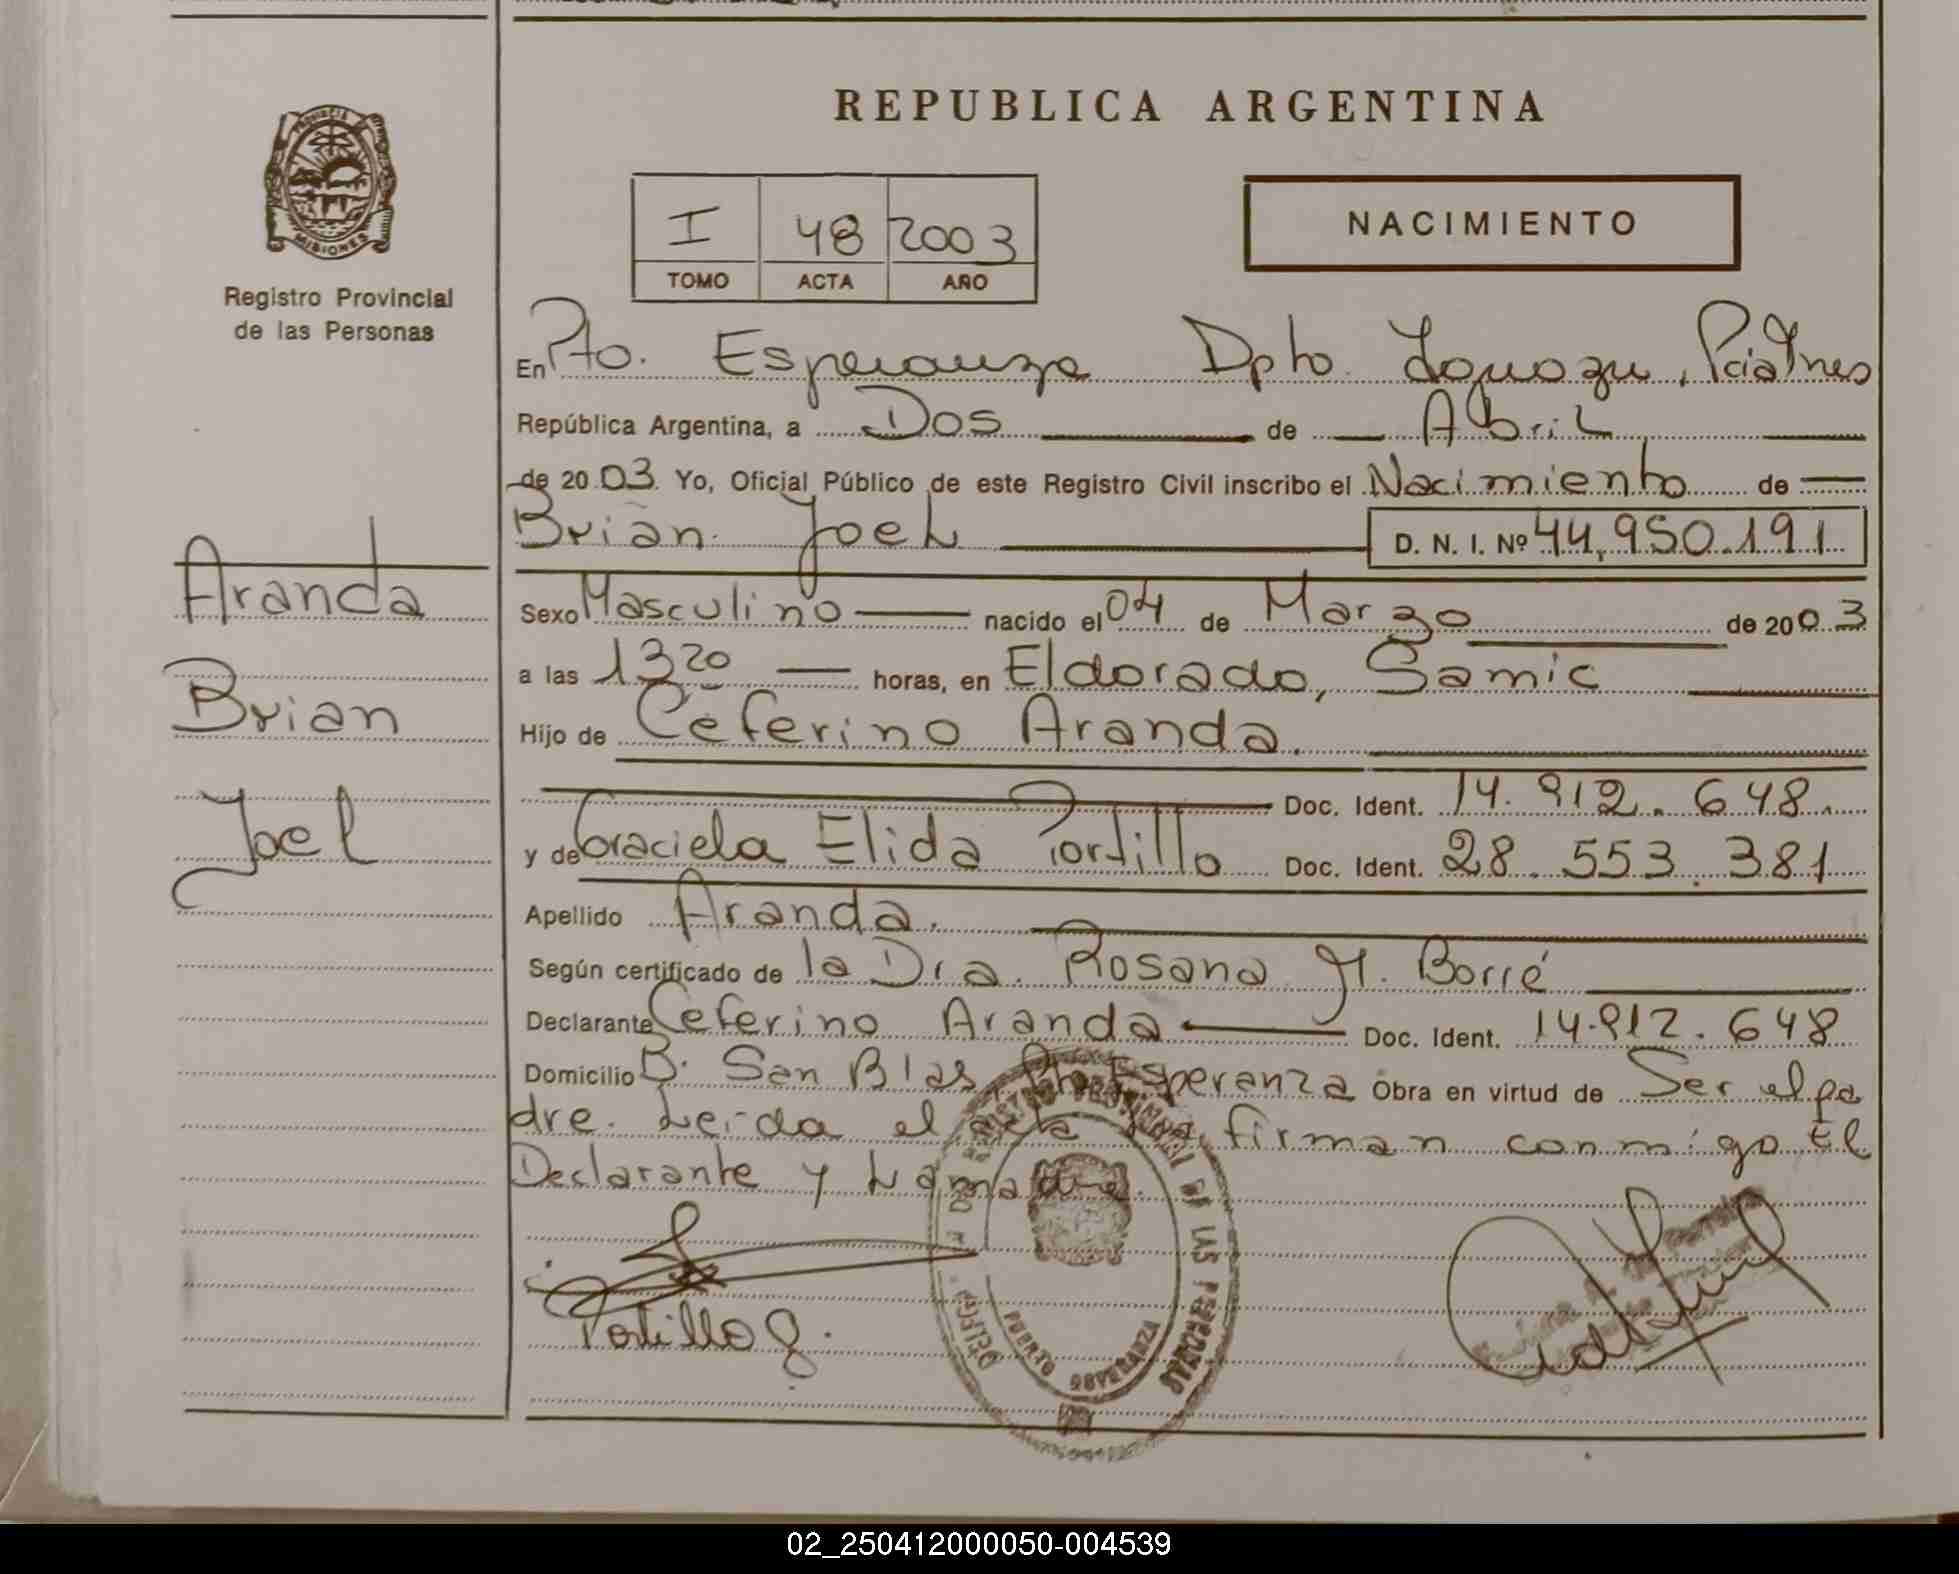 REPUBLICA ARGENTINA
PROVINCIA
MISIONES
Registro Provincial
de las Personas
I 48 2003
TOMO ACTA AÑO
NACIMIENTO
En Pto. Esperanza Dpto. Iguazu, Pcia Mnes
República Argentina, a Dos de Abril
de 2003. Yo, Oficial Público de este Registro Civil inscribo el Nacimiento de
Brian Joel D. N. I. Nº 44.950.191
Aranda
Brian
Joel
Sexo Masculino nacido el 04 de Marzo de 2003
a las 13 20 horas, en Eldorado, Samic
Hijo de Ceferino Aranda.
Doc. Ident. 14.912.648
y de Graciela Elida Portillo Doc. Ident. 28.553.381
Apellido Aranda.
Según certificado de la Dra. Rosana M. Borré
Declarante Ceferino Aranda Doc. Ident. 14.912.648
Domicilio B. San Blas, Pto Esperanza Obra en virtud de Ser el pa
dre. Leida el acta la firman conmigo El
Declarante y La madre.
Portillo G.
REGISTRO PROVINCIAL DE LAS PERSONAS
PUERTO ESPERANZA
02_250412000050-004539